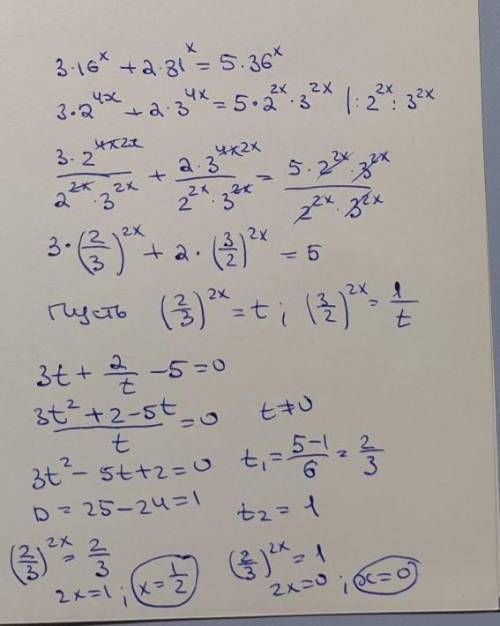 3·16^x + 2·81^x = 5·36^x
3·2^{4x} + 2·3^{4x} = 5·2^{2x}·3^{2x} |:2^{2x}:3^{2x}
\frac{3·2^{4x 2x}}{2^{2x}·3^{2x}} + \frac{2·3^{4x 2x}}{2^{2x}·3^{2x}} = \frac{5·2^{2x}·3^{2x}}{2^{2x}·3^{2x}}
3·(\frac{2}{3})^{2x} + 2·(\frac{3}{2})^{2x} = 5
Пусть (\frac{2}{3})^{2x} = t ; (\frac{3}{2})^{2x} = \frac{1}{t}
3t + \frac{2}{t} - 5 = 0
\frac{3t^2 + 2 - 5t}{t} = 0 t ≠ 0
3t^2 - 5t + 2 = 0 t_1 = \frac{5-1}{6} = \frac{2}{3}
D = 25 - 24 = 1 t_2 = 1
(\frac{2}{3})^{2x} = \frac{2}{3} (\frac{2}{3})^{2x} = 1
2x = 1 ; x = \frac{1}{2} 2x = 0 ; x = 0